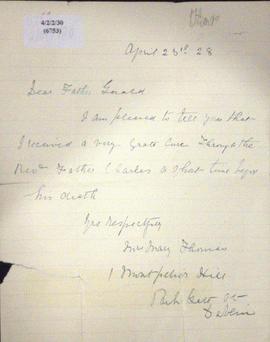 4/2/2/30
(6753)
Thomas
April 25th 28
Dear Father Gerald
I am pleased to tell you that
I received a very great cure through the
Revd Father Charles a short time before
his death
Yrs respectfully
Mrs Mary Thomas
1 Montpelier Hill
Park Gate St
Dublin